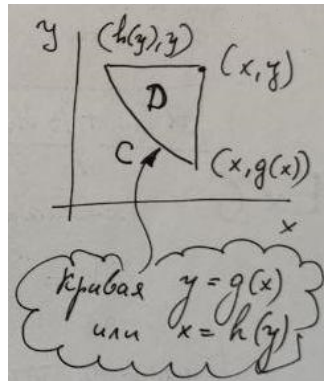 y
(h(y),y)
(x,y)
D
C
(x,g(x))
x
Кривая y=g(x)
или x=h(y)